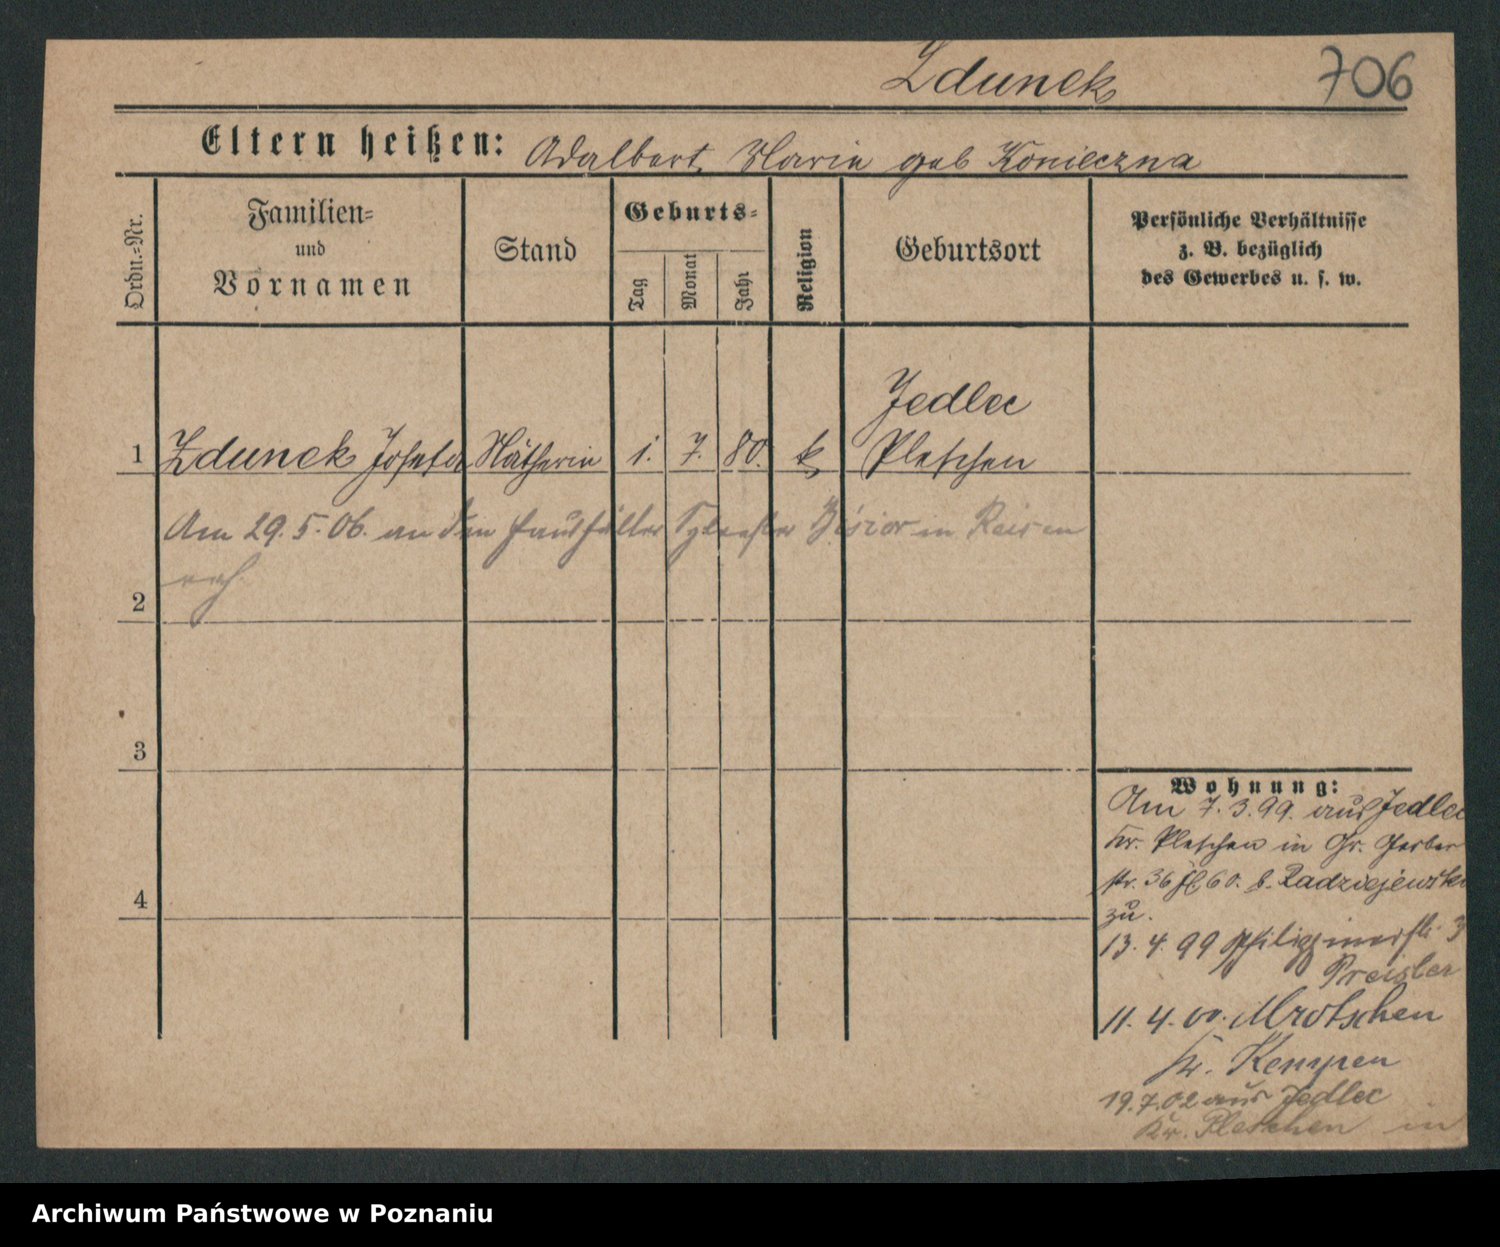 Zdunek 706
Eltern heißen: Adalbert, Maria geb Konieczna
Ordn.=Nr.
Familien=
und
Vornamen
Stand
Geburts=
Tag
Monat
Jahr
Religion
Geburtsort
Persönliche Verhältnisse
z. B. bezüglich
des Gewerbes u. s. w.
Jedlec
1 Zdunek Josefa Nätherin 1. 7. 80. k Pleschen
Am 29. 5. 06. an den Haushälter Sylvester in Reisen
2
3
4
Wohnung:
Am 7. 3. 99. aus Jedlec
Kr. Pleschen in Gr. Gerber
str. 36 60. b. Radziejewski
zu.
13. 4. 99 Philippinerstr. 3
Preisler
11. 4. 00. Mrotschen
Kr. Kempen
19. 7. 02 aus Jedlec
Kr. Pleschen in
Archiwum Państwowe w Poznaniu